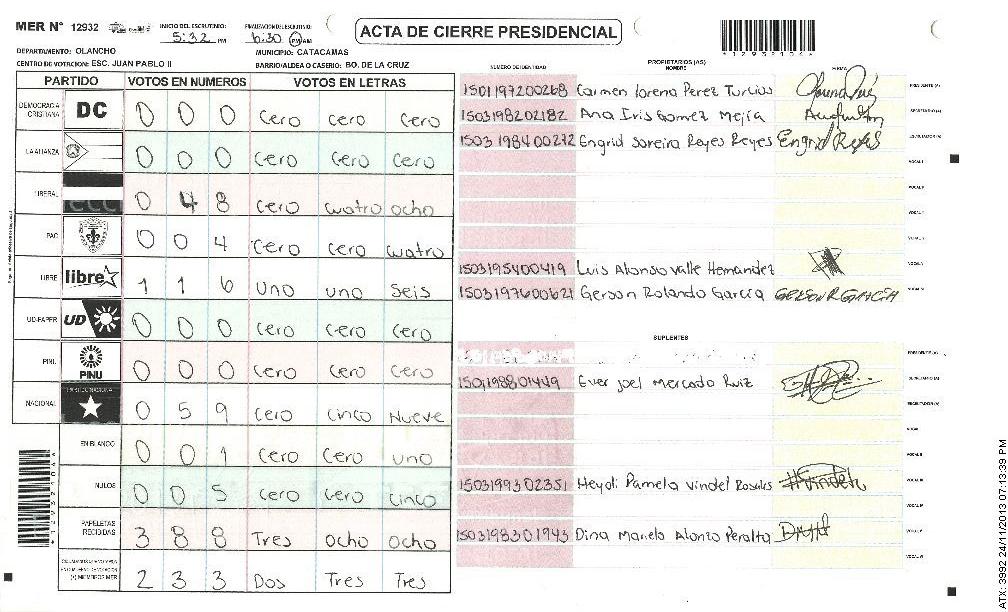 MER N° 12932
INICIO DEL ESCRUTINIO:
5:32 PM
FINALIZACION DEL ESCRUTINIO:
6:30 PM AM
ACTA DE CIERRE PRESIDENCIAL
*12932104*
DEPARTAMENTO: OLANCHO
MUNICIPIO: CATACAMAS
CENTRO DE VOTACION: ESC. JUAN PABLO II
BARRIO/ALDEA O CASERIO: BO. DE LA CRUZ
PARTIDO VOTOS EN NUMEROS VOTOS EN LETRAS
DEMOCRACIA CRISTIANA DC 0 0 0 cero cero cero
LA ALIANZA 0 0 0 cero cero cero
LIBERAL 0 4 8 cero cuatro ocho
PAC 0 0 4 cero cero cuatro
LIBRE libre 1 1 6 uno uno seis
UD-FAPER UD 0 0 0 cero cero cero
PINU PINU 0 0 0 cero cero cero
NACIONAL 0 5 9 cero cinco Nueve
EN BLANCO 0 0 1 cero cero uno
NULOS 0 0 5 cero cero cinco
PAPELETAS RECIBIDAS 3 8 8 Tres ocho ocho
(+) MIEMBROS MER 2 3 3 Dos Tres Tres
PROPIETARIOS (AS)
NUMERO DE IDENTIDAD NOMBRE FIRMA
1501197200268 Carmen Lorena Perez Turcios PRESIDENTE (A)
1503198202182 Ana Iris Gomez Mejia SECRETARIO (A)
1503198400272 Engrid Soreira Reyes Reyes Engrid Reyes ESCRUTADOR (A)
1503195400419 Luis Alonso Valle Hernandez
1503197600621 Gerson Rolando Garcia GERSON R GARCIA
SUPLENTES
PRESIDENTE (A)
1501198801449 Ever Joel Mercado Ruiz SECRETARIO (A)
ESCRUTADOR (A)
1503199302351 Heydi Pamela Vindel Rosales
1503198301943 Dina Mariela Alonzo Peralta
ATX: 3992 24/11/2013 07:13:39 PM